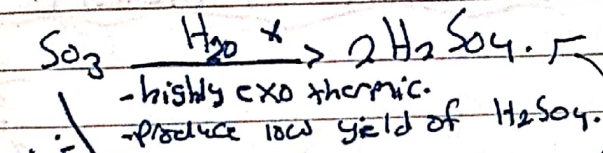 SO3 H2O x → 2H2SO4.
-highly exo thermic.
-produce low yield of H2SO4.